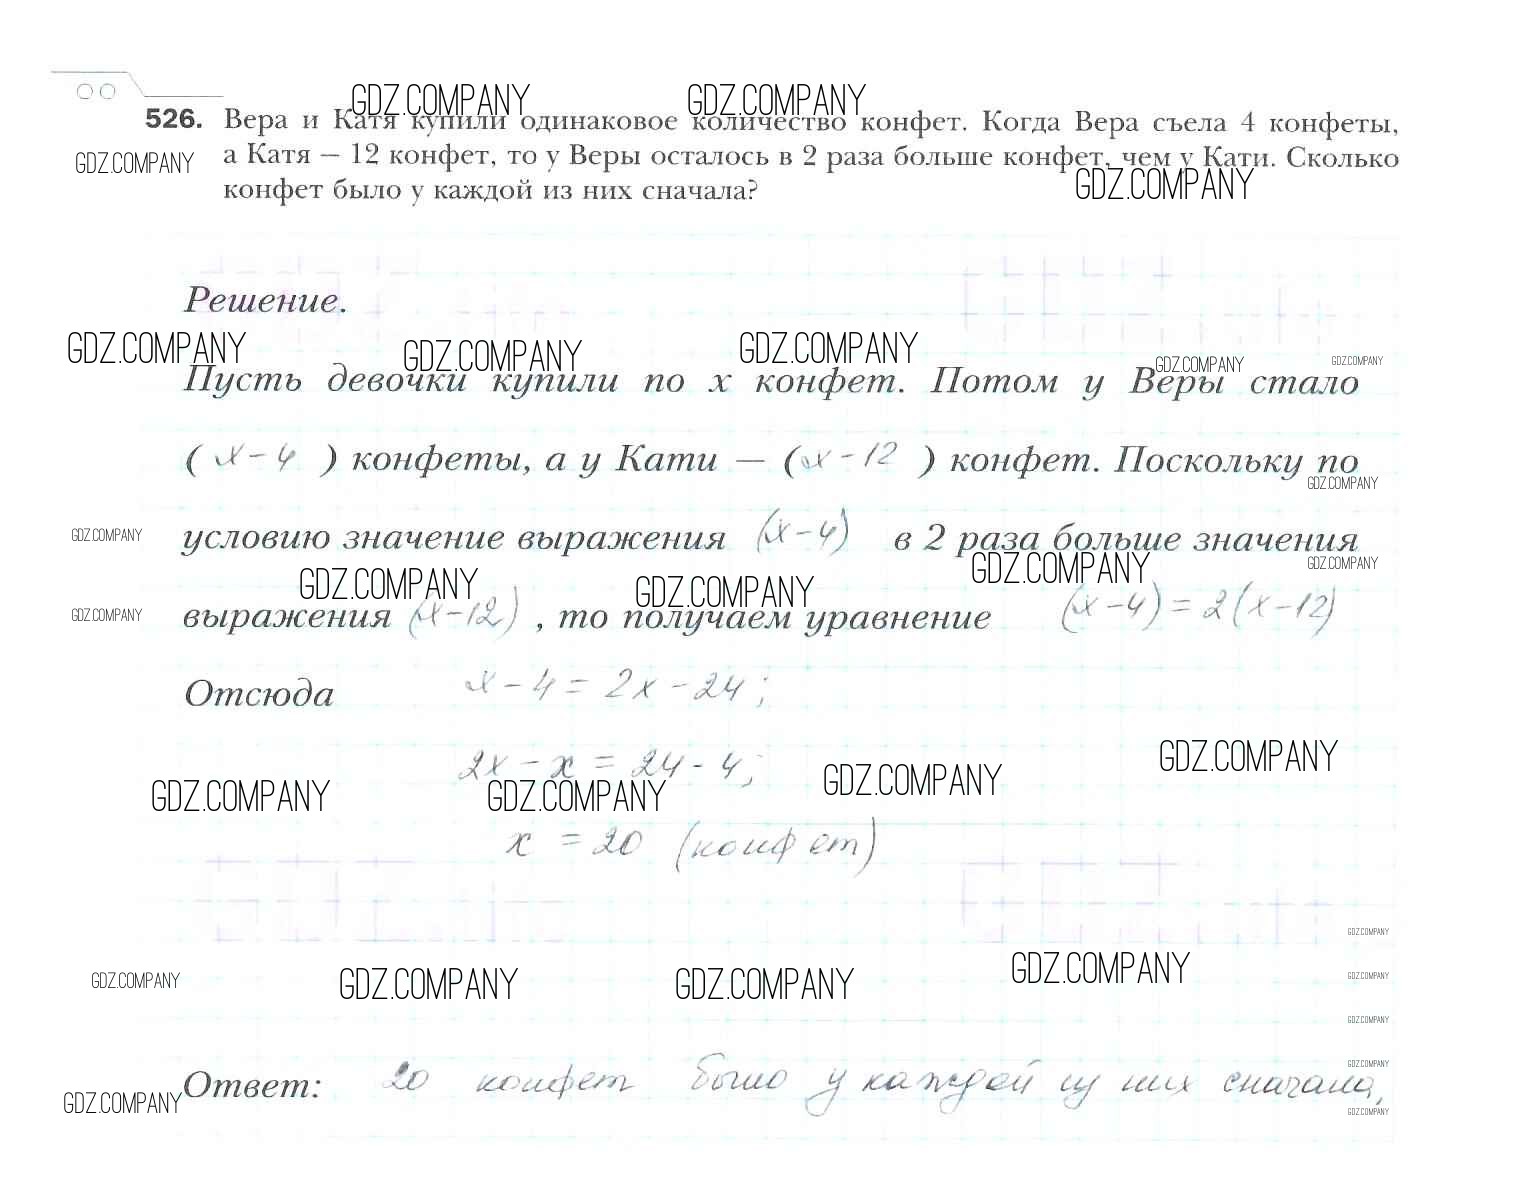 GDZ.COMPANY GDZ.COMPANY
526. Вера и Катя купили одинаковое количество конфет. Когда Вера съела 4 конфеты,
GDZ.COMPANY а Катя — 12 конфет, то у Веры осталось в 2 раза больше конфет, чем у Кати. Сколько
GDZ.COMPANY
конфет было у каждой из них сначала?
Решение.
GDZ.COMPANY GDZ.COMPANY GDZ.COMPANY GDZ.COMPANY GDZ.COMPANY
Пусть девочки купили по x конфет. Потом у Веры стало
( x - 4 ) конфеты, а у Кати — ( x - 12 ) конфет. Поскольку по
GDZ.COMPANY
GDZ.COMPANY условию значение выражения (x - 4) в 2 раза больше значения
GDZ.COMPANY GDZ.COMPANY GDZ.COMPANY GDZ.COMPANY
GDZ.COMPANY выражения (x - 12) , то получаем уравнение (x - 4) = 2 (x - 12)
Отсюда x - 4 = 2x - 24;
2x - x = 24 - 4;
GDZ.COMPANY GDZ.COMPANY GDZ.COMPANY GDZ.COMPANY
x = 20 (конфет)
GDZ.COMPANY
GDZ.COMPANY GDZ.COMPANY GDZ.COMPANY GDZ.COMPANY GDZ.COMPANY
GDZ.COMPANY
GDZ.COMPANY
GDZ.COMPANY Ответ: 20 конфет было у каждой из них сначала,
GDZ.COMPANY